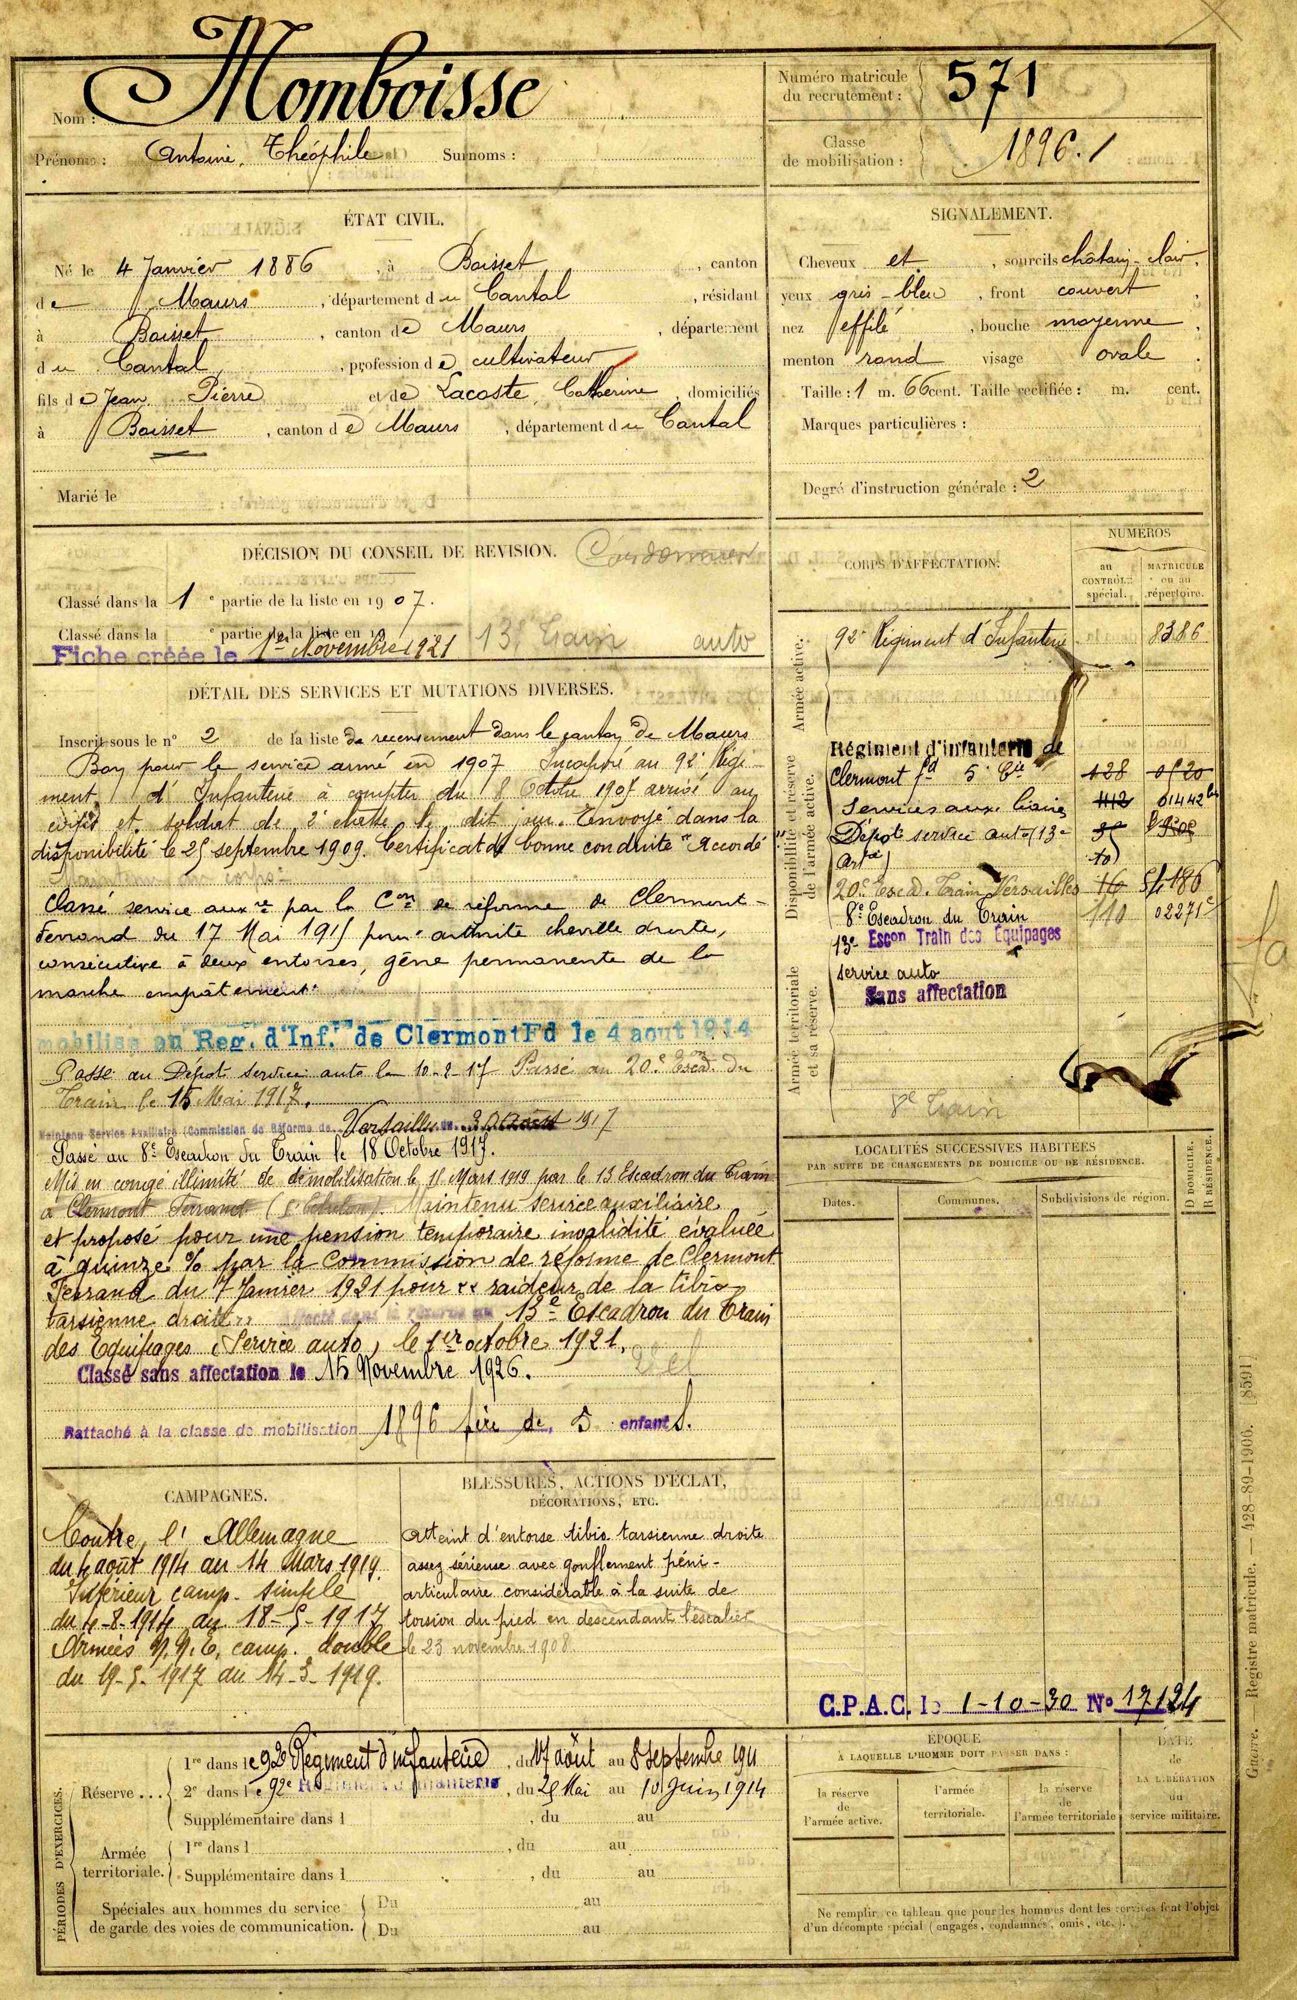 Nom : Momboisse
Prénoms : Antoine, Théophile Surnoms :
Numéro matricule
du recrutement : 571
Classe
de mobilisation : 1896.1
ÉTAT CIVIL.
Né le 4 Janvier 1886, à Boisset, canton
de Maurs, département du Cantal, résidant
à Boisset, canton de Maurs, département
du Cantal, profession de cultivateur
fils de Jean Pierre et de Lacoste, Catherine domiciliés
à Boisset, canton de Maurs, département du Cantal
Marié le
SIGNALEMENT.
Cheveux et, sourcils châtain-clair,
yeux gris-bleu, front couvert,
nez effilé, bouche moyenne,
menton rond visage ovale.
Taille : 1 m. 66 cent. Taille rectifiée : m. cent.
Marques particulières :
Degré d'instruction générale : 2
DÉCISION DU CONSEIL DE REVISION. Cordonnier
Classé dans la 1e partie de la liste en 1907.
Classé dans la e partie de la liste en 19
Fiche créée le 1er Novembre 1921 13e Train auto
DÉTAIL DES SERVICES ET MUTATIONS DIVERSES.
Inscrit sous le n° 2 de la liste de recensement dans le canton de Maurs
Bon pour le service armé en 1907 Incorporé au 92e Régi-
ment d'Infanterie à compter du 8 Octobre 1907 arrivé au
corps et soldat de 2e classe le dit jour. Envoyé dans la
disponibilité le 25 septembre 1909. Certificat de bonne conduite "Accordé"
Classé service auxre par la Con de réforme de Clermont-
Ferrand du 17 Mai 1915 pour arthrite cheville droite,
consécutive à deux entorses, gêne permanente de la
marche empâtement.
mobilisé au Reg. d'Inf.ie de Clermont Fd le 4 aout 1914
Passé au Dépot service auto le 10-2-17 Passé au 20e Escon du
Train le 15 Mai 1917.
Maintenu Service Auxiliaire (Commission de Réforme de Versailles du 30 Août 1917
Passé au 8e Escadron du Train le 18 Octobre 1917.
Mis en congé illimité de démobilisation le 11 Mars 1919 par le 13 Escadron du Train
à Clermont Ferrand (1er Echelon). Maintenu service auxiliaire
et proposé pour une pension temporaire invalidité évaluée
à quinze % par la Commission de réforme de Clermont
Ferrand du 7 Janvier 1921 pour "raideur de la tibio
tarsienne droite" Affecté dans la réserve au 13e Escadron du Train
des Equipages (Service auto) le 1er octobre 1921.
Classé sans affectation le 15 Novembre 1926.
Rattaché à la classe de mobilisation 1896 père de 5 enfants.
CORPS D'AFFECTATION.
NUMÉROS
au CONTRÔLE spécial.
MATRICULE ou au répertoire.
Armée active.
92e Régiment d'Infanterie 8386
Disponibilité et réserve de l'armée active.
Régiment d'infanterie de
Clermont Fd 5e Cie 128 0520
Services auxiliaires 112 01442 bis
Dépot service auto (13e 35
Artie)
20e Escad. Train Versailles 16 54186
8e Escadron du Train 110 02271c
13e Escon Train des Équipages
service auto
Sans affectation
Armée territoriale et sa réserve.
8e Train
LOCALITÉS SUCCESSIVES HABITÉES
PAR SUITE DE CHANGEMENTS DE DOMICILE OU DE RÉSIDENCE.
Dates. Communes. Subdivisions de région. D DOMICILE. R RÉSIDENCE.
C.P.A.C. le 1-10-30 N° 17124
CAMPAGNES.
Contre l'Allemagne
du 4 août 1914 au 14 Mars 1919.
Intérieur camp. simple
du 4-8-1914 au 18-5-1917
Armées N.N.E. camp. double
du 19-5-1917 au 14-3-1919.
BLESSURES, ACTIONS D'ÉCLAT,
DÉCORATIONS, ETC.
Atteint d'entorse tibio tarsienne droite
assez sérieuse avec gonflement péri-
articulaire considérable à la suite de
torsion du pied en descendant l'escalier
le 23 novembre 1908.
PÉRIODES D'EXERCICES.
Réserve ...
1re dans le 92e Régiment d'infanterie, du 17 août au 8 septembre 1911
2e dans le 92e Régiment d'Infanterie, du 25 Mai au 10 Juin 1914
Supplémentaire dans l , du au
Armée territoriale.
1re dans l , du au
Supplémentaire dans l , du au
Spéciales aux hommes du service
de garde des voies de communication.
Du au
Du au
ÉPOQUE
À LAQUELLE L'HOMME DOIT PASSER DANS :
la réserve de l'armée active.
l'armée territoriale.
la réserve de l'armée territoriale
DATE de LA LIBÉRATION du service militaire.
Ne remplir ce tableau que pour les hommes dont les services font l'objet
d'un décompte spécial (engagés, condamnés, omis, etc.).
Guerre. — Registre matricule. — 428-89-1906. [8591]